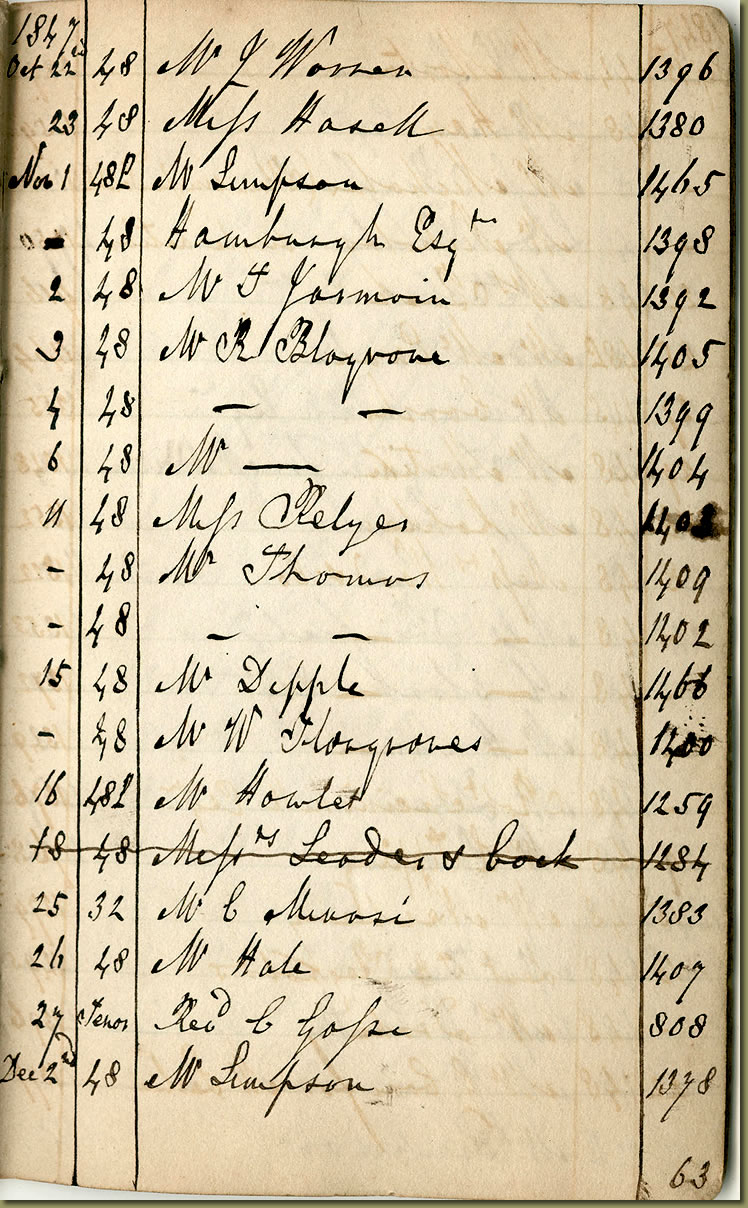 1847
Oct 22nd 48 Mr J Warren 1396
23 48 Miss Hasell 1380
Nov 1 48L Mr Simpson 1465
- 48 Hamburgh Esqr 1398
2 48 Mr T Jarmain 1392
3 48 Mr R Blagrove 1405
4 48 — — 1399
6 48 Mr — 1404
11 48 Miss Relyer
- 48 Mr Thomas 1409
- 48 — — 1402
15 48 Mr Dipple 1466
- 48 Mr W Hargroves 1400
16 48L Mr Howlet 1259
18 48 Messrs Leader & Cock 1284
25 32 Mr C Minasi 1383
26 48 Mr Hale 1407
27 Tenor Revd C Gosse 808
Dec 2nd 48 Mr Simpson 1378
63